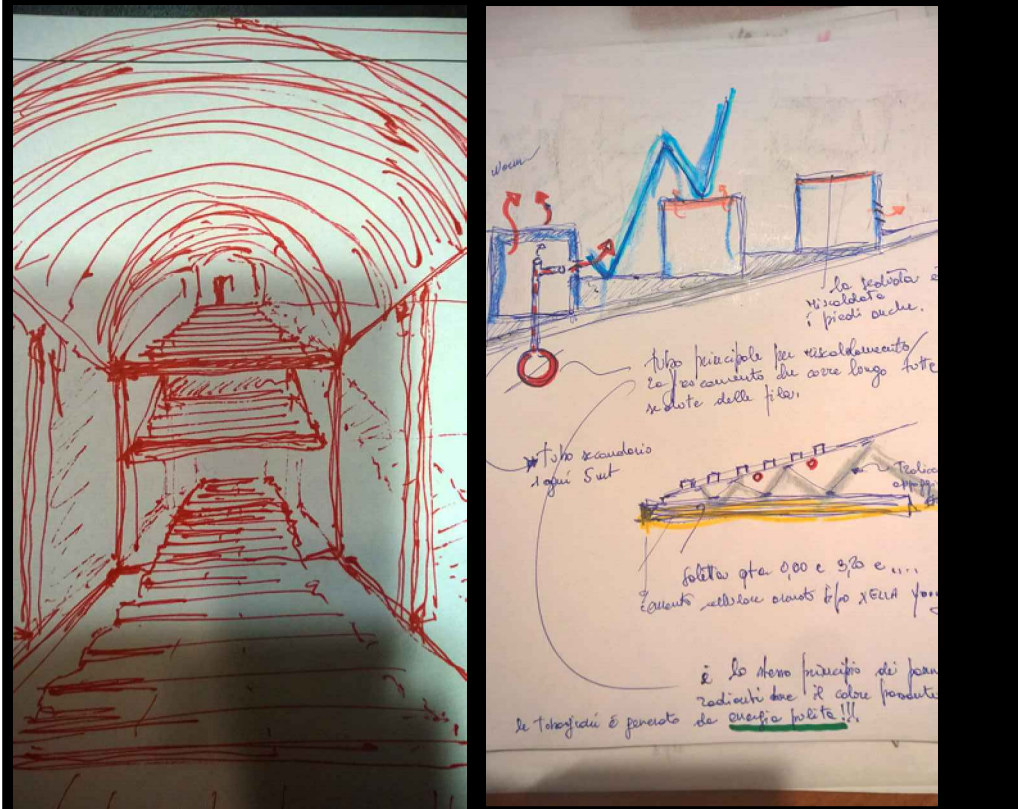 la seduta è
riscaldata
i piedi anche.
tubo principale per riscaldamento/
che corre lungo tutte
sedute delle file.
tubo secondario
ogni 5 mt
Soletta qta 0,00 e 3,20 e ....
cemento cellulare armato tipo XELLA
è lo stesso principio dei pann
radianti dove il calore passante
le tubazioni è generato da energia pulita!!!